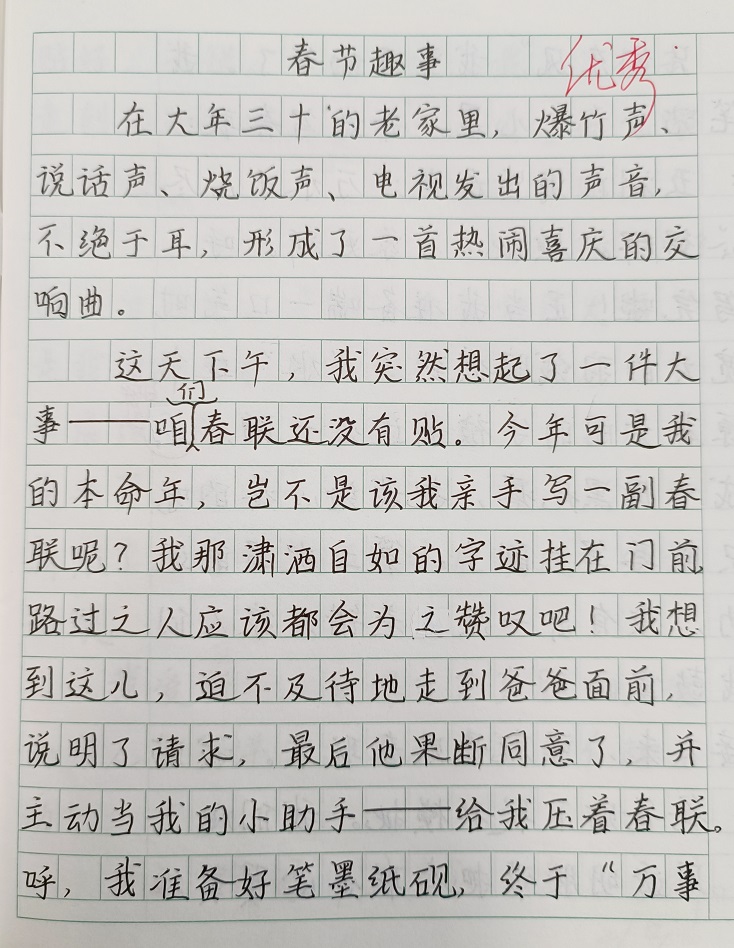 春节趣事 优秀
在大年三十的老家里，爆竹声、
说话声、烧饭声、电视发出的声音，
不绝于耳，形成了一首热闹喜庆的交
响曲。
这天下午，我突然想起了一件大
事——咱们春联还没有贴。今年可是我
的本命年，岂不是该我亲手写一副春
联呢？我那潇洒自如的字迹挂在门前，
路过之人应该都会为之赞叹吧！我想
到这儿，迫不及待地走到爸爸面前，
说明了请求，最后他果断同意了，并
主动当我的小助手——给我压着春联。
呼，我准备好笔墨纸砚，终于“万事